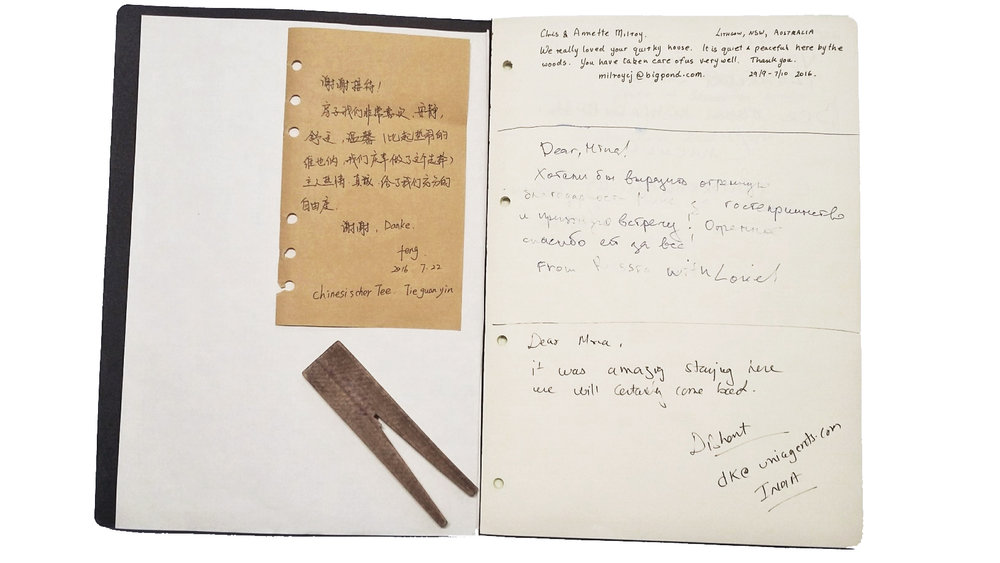 谢谢接待!
房子我们非常喜欢,安静,
舒适,温馨(比起热闹的
维也纳,我们庆幸做了这个选择)
主人热情 真诚,给了我们充分的
自由度.
谢谢, Danke.
feng
2016 7.22
Chinesischer Tee. Tieguanyin
Chris & Annette Milroy. LITHGOW, NSW, AUSTRALIA
We really loved your quirky house. It is quiet & peaceful here by the
woods. You have taken care of us very well. Thank you.
milroycj@bigpond.com. 29/9 - 7/10 2016.
Dear, Mina!
Хотели бы выразить огромную
благодарность за гостеприимство
и встречу! Огромное
спасибо ей за всё!
From Russia with Love!
Dear Mina,
it was amazig staying here
we will certainly come back.
Dishant
dk@uniagents.com
INDIA